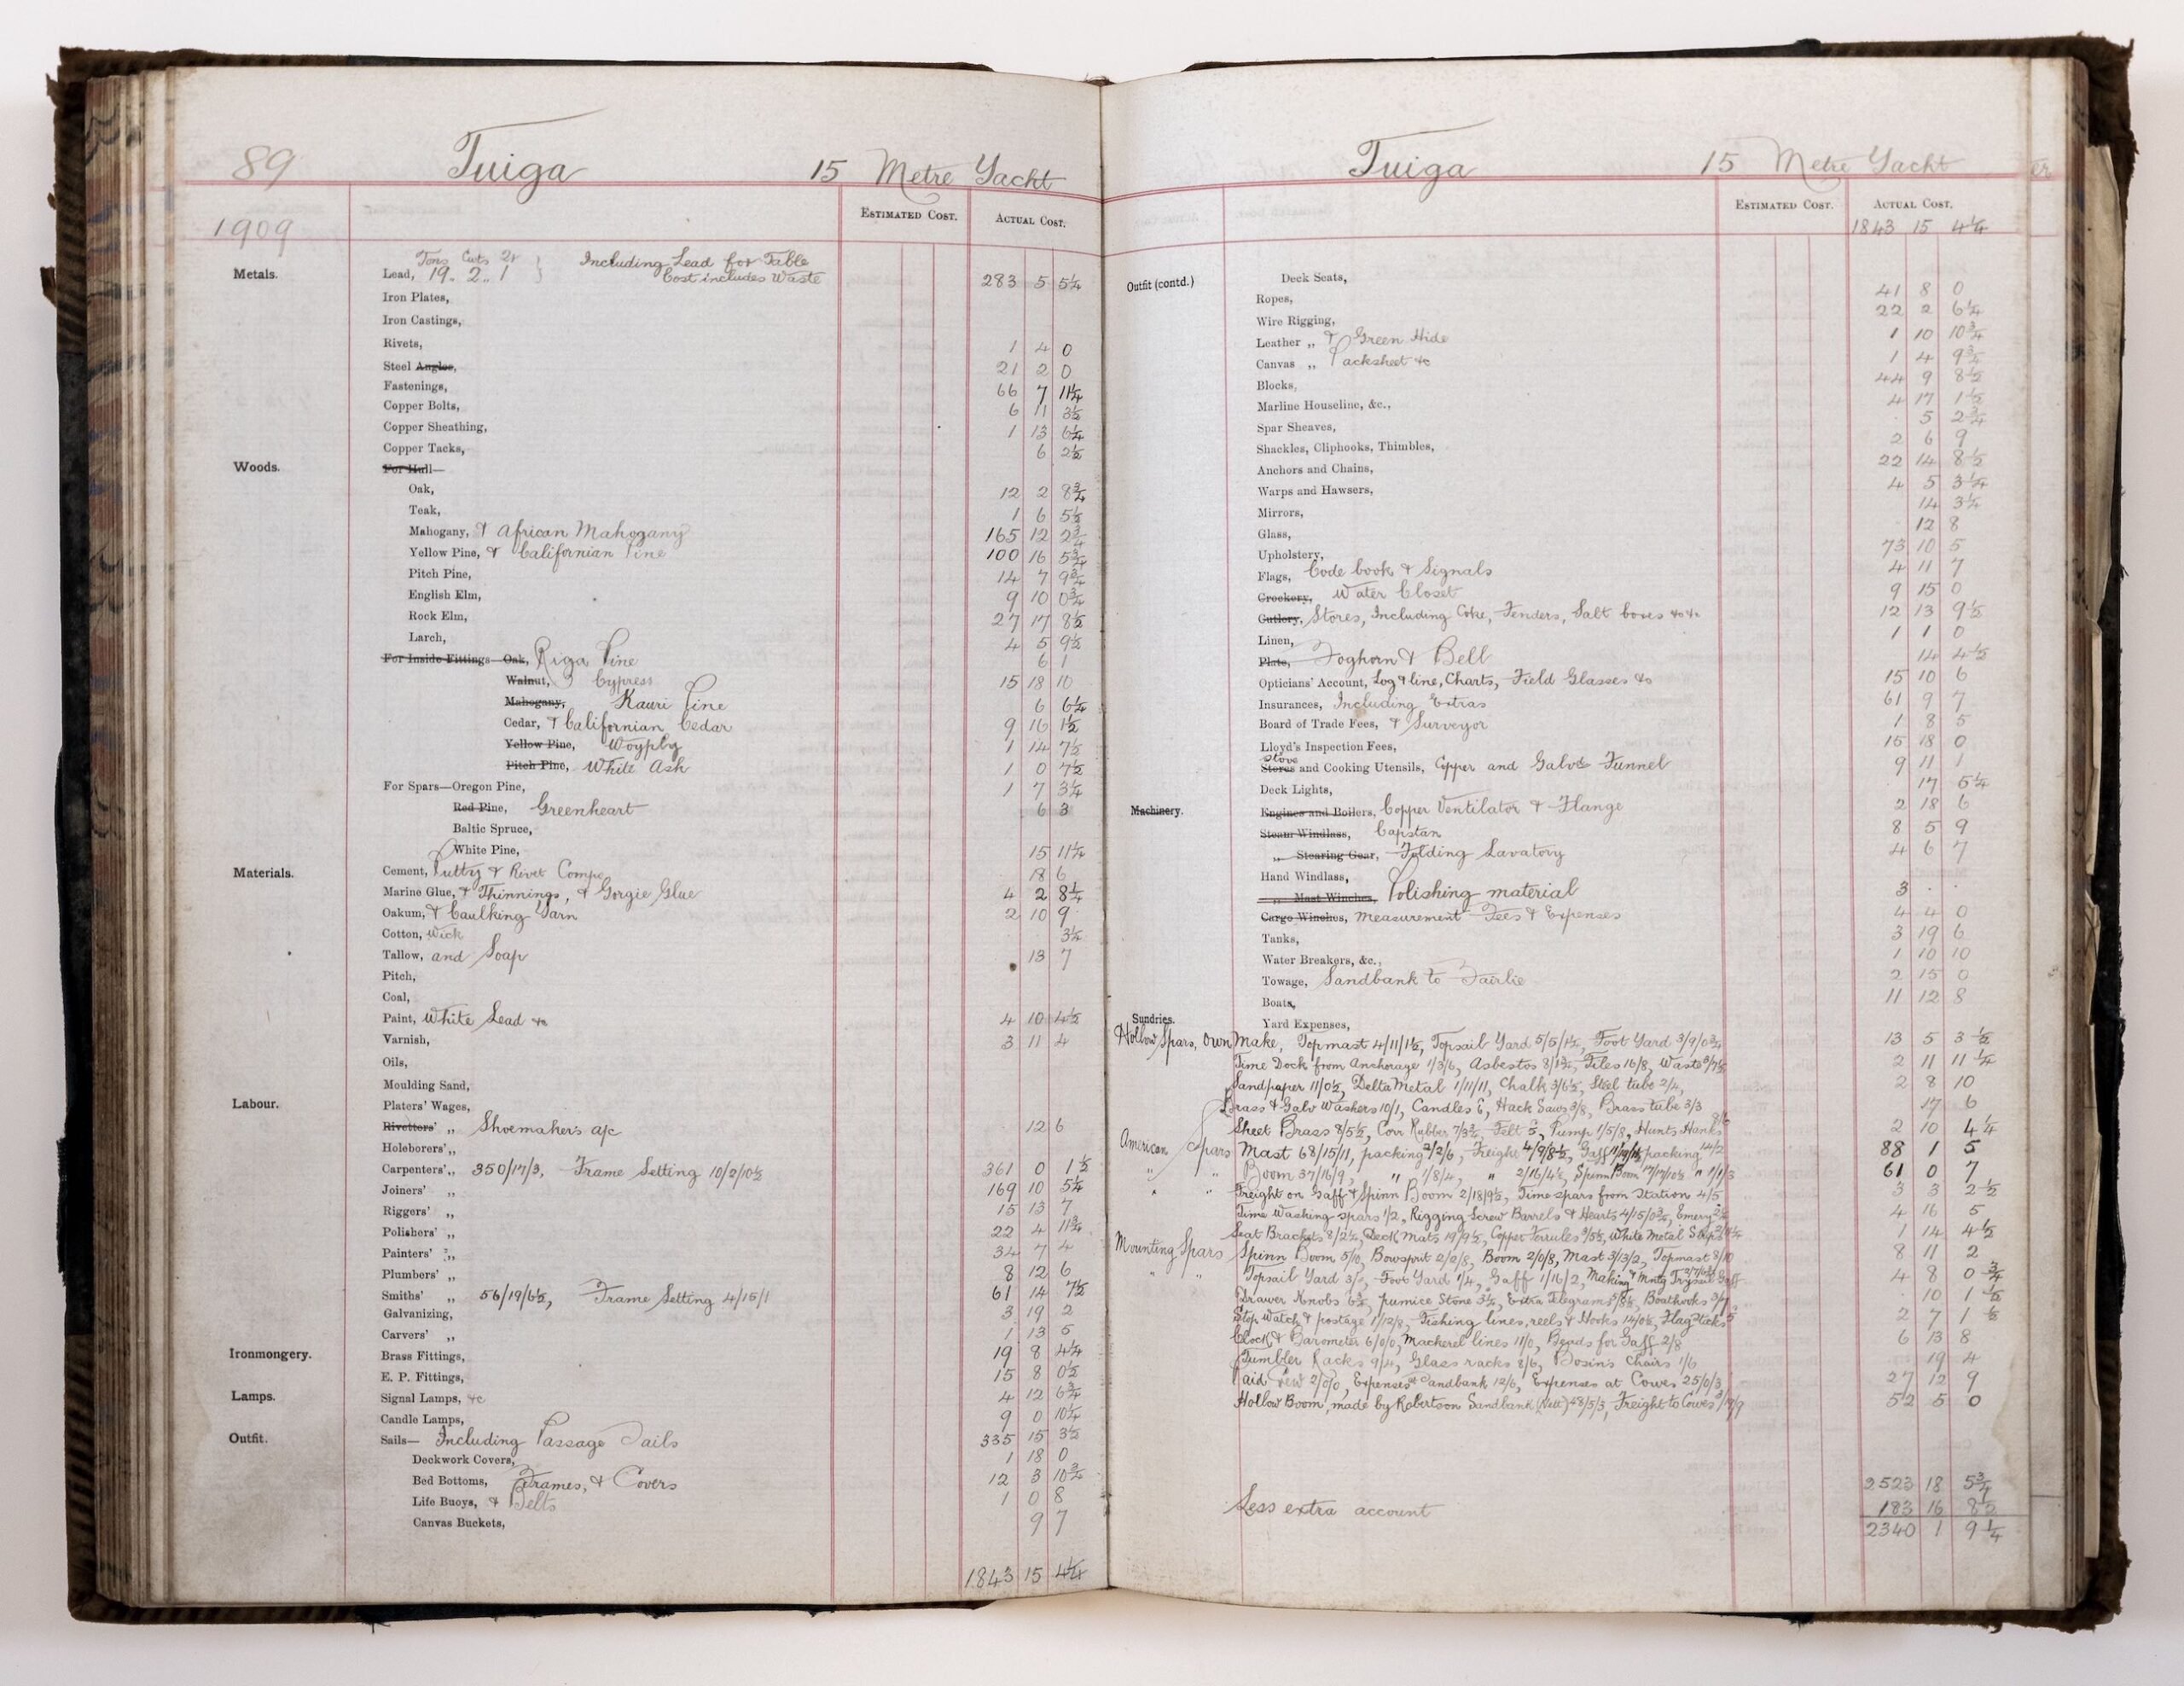 89 Tuiga 15 Metre Yacht
1909 Estimated Cost. Actual Cost.
Tons Cwts Qr Including Lead for Table
Metals. Lead, 19 .. 2 .. 1 } Cost includes Waste 283 5 5¼
Iron Plates,
Iron Castings,
Rivets, 1 4 0
Steel Angles, 21 2 0
Fastenings, 66 7 11¼
Copper Bolts, 6 11 3½
Copper Sheathing, 1 13 6¼
Copper Tacks, 6 2½
Woods. For Hull—
Oak, 12 2 8¾
Teak, 1 6 5½
Mahogany, & African Mahogany 165 12 2¾
Yellow Pine, & Californian Pine 100 16 5¾
Pitch Pine, 14 7 9¾
English Elm, 9 10 0¾
Rock Elm, 27 17 8½
Larch, 4 5 9½
For Inside Fittings—Oak, Riga Pine 6 1
Walnut, Cypress 15 18 10
Mahogany, Kauri Pine 6 6¼
Cedar, & Californian Cedar 9 16 1½
Yellow Pine, 1 14 7½
Pitch Pine, White Ash 1 0 7½
For Spars—Oregon Pine, 1 7 3¼
Red Pine, Greenheart 6 3
Baltic Spruce,
White Pine, 15 11¼
Materials. Cement, Putty & Rivet Compo 18 6
Marine Glue, & Thinnings, & Gorgie Glue 4 2 8¼
Oakum, & Caulking Yarn 2 10 9
Cotton, Wick 3¼
Tallow, and Soap 13 7
Pitch,
Coal,
Paint, White Lead &c 4 10 4½
Varnish, 3 11 4
Oils,
Moulding Sand,
Labour. Platers' Wages,
Rivetters' „ Shoemaker's a/c 12 6
Holeborers' „
Carpenters' „ 350/17/3, Frame Setting 10/2/10½ 361 0 1½
Joiners' „ 169 10 5¼
Riggers' „ 15 13 7
Polishers' „ 22 4 11¾
Painters' „ 34 7 4
Plumbers' „ 8 12 6
Smiths' „ 56/19/6½, Frame Setting 4/15/1 61 14 7½
Galvanizing, 3 19 2
Carvers' „ 1 13 5
Ironmongery. Brass Fittings, 19 8 4¼
E. P. Fittings, 15 8 0½
Lamps. Signal Lamps, &c 4 12 6¾
Candle Lamps, 9 0 10¼
Outfit. Sails— Including Passage Sails 335 15 3½
Deckwork Covers, 1 18 0
Bed Bottoms, Frames, & Covers 12 3 10¾
Life Buoys, & Belts 1 0 8
Canvas Buckets, 9 7
1843 15 4¼
Tuiga 15 Metre Yacht
Estimated Cost. Actual Cost.
1843 15 4¼
Outfit (contd.) Deck Seats,
Ropes, 41 8 0
Wire Rigging, 22 2 6¼
Leather „ & Green Hide 1 10 10¾
Canvas „ Packsheet &c 1 4 9¾
Blocks, 44 9 8½
Marline Houseline, &c., 4 17 1½
Spar Sheaves, 5 2¾
Shackles, Cliphooks, Thimbles, 2 6 9
Anchors and Chains, 22 14 8½
Warps and Hawsers, 4 5 3¼
Mirrors, 14 3¼
Glass, 12 8
Upholstery, 73 10 5
Flags, Code book & Signals 4 11 7
Crockery, Water Closet 9 15 0
Cutlery, Stores, Including Coke, Fenders, Salt boxes &c &c 12 13 9½
Linen, 1 1 0
Plate, Foghorn & Bell 14 4½
Opticians' Account, Log & line, Charts, Field Glasses &c 15 10 6
Insurances, Including Extras 61 9 7
Board of Trade Fees, & Surveyor 1 8 5
Lloyd's Inspection Fees, 15 18 0
Stove
Stores and Cooking Utensils, Copper and Galvd Funnel 9 11 1
Deck Lights, 17 5¼
Machinery. Engines and Boilers, Copper Ventilator & Flange 2 18 6
Steam Windlass, Capstan 8 5 9
„ Stearing Gear, Folding Lavatory 4 6 7
Hand Windlass,
„ Mast Winches, Polishing material 3 . .
Cargo Winches, Measurement Fees & Expenses 4 4 0
Tanks, 3 19 6
Water Breakers, &c., 1 10 10
Towage, Sandbank to Fairlie 2 15 0
Boats, 11 12 8
Sundries. Yard Expenses,
Hollow Spars, Own Make, Topmast 4/11/1½, Topsail Yard 5/5/1½, Foot Yard 3/9/0¾ 13 5 3½
Time Dock from Anchorage 1/3/6, Asbestos 8/1¾, Files 16/8, Waste 3/7½ 2 11 11¼
Sandpaper 11/0½, Delta Metal 1/11/11, Chalk 3/6½, Steel tube 2/4, 2 8 10
Brass & Galv Washers 10/1, Candles 6, Hack Saws 3/8, Brass tube 3/3 17 6
Sheet Brass 8/5½, Corr Rubber 7/3¾, Felt 5, Pump 1/5/8, Hunts Hanks 2 10 4¼
American Spars Mast 68/15/11, packing 2/2/6, Freight 4/9/8½, Gaff packing 14/2 88 1 5
„ „ Boom 37/16/9, „ 1/8/4, „ 2/16/4½, Spinn Boom 17/17/10½ „ 1/1/3 61 0 7
„ „ Freight on Gaff & Spinn Boom 2/18/9½, Time spars from Station 4/5 3 3 2½
Time Washing spars 1/2, Rigging Screw Barrels & Hearts 4/15/0¾, Emery 4 16 5
Seat Brackets 8/2¼, Deck Mats 19/9½, Copper Ferrules 3/5½, White Metal 1 14 4½
Mounting Spars Spinn Boom 5/10, Bowsprit 2/2/8, Boom 2/0/8, Mast 3/3/2, Topmast 8/10 8 11 2
„ „ Topsail Yard 3/., Foot Yard 1/4, Gaff 1/16/2, Making & Mntg Trysail Gaff 4 8 0¾
Drawer Knobs 6½, pumice Stone 3¼, Extra Telegrams 5/8½, Boathooks 3/7 10 1½
Stop Watch & postage 1/12/8, Fishing lines, reels & Hooks 14/0½, Flagsticks 5 2 7 1½
Clock & Barometer 6/0/0, Mackerel lines 11/0, Beads for Gaff 2/8 6 13 8
Tumbler Racks 9/4, Glass racks 8/6, Bosin's Chairs 1/6 19 4
Paid Crew 2/0/0, Expenses at Sandbank 12/6, Expenses at Cowes 25/0/3 27 12 9
Hollow Boom, made by Robertson Sandbank (Nett) 48/5/3, Freight to Cowes 3/19/9 52 5 0
2523 18 5¾
Less extra account 183 16 8½
2340 1 9¼